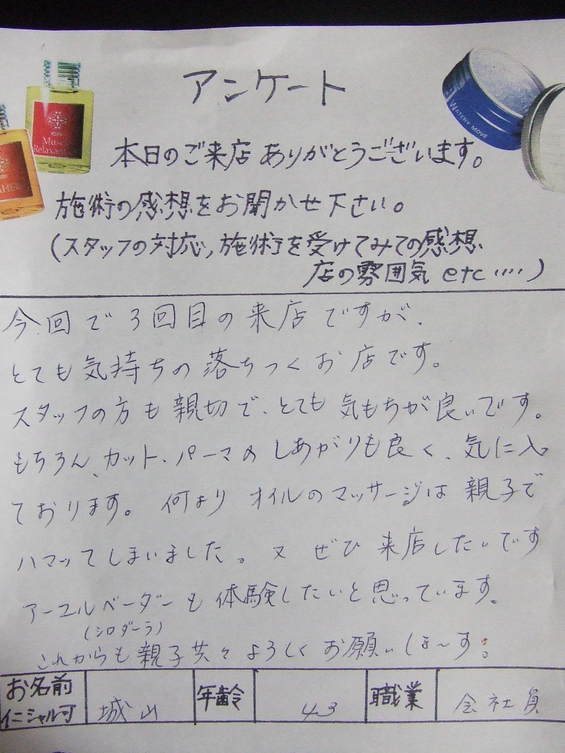 アンケート
本日のご来店ありがとうございます。
施術の感想をお聞かせ下さい。
(スタッフの対応,施術を受けてみての感想
店の雰囲気 etc‥‥)
今回で3回目の来店ですが、
とても気持ちの落ちつくお店です。
スタッフの方も親切で、とても気もちが良いです。
もちろん、カット、パーマのしあがりも良く、気に入っ
ております。何より オイルのマッサージは親子で
ハマッてしまいました。又 ぜひ 来店したいです
アーユルベーダーも体験したいと思っています。
(シロダーラ)
これからも親子共々よろしくお願いしま〜す。
お名前 イニシャル可 城山 年齢 43 職業 会社員
WATERY MOVE